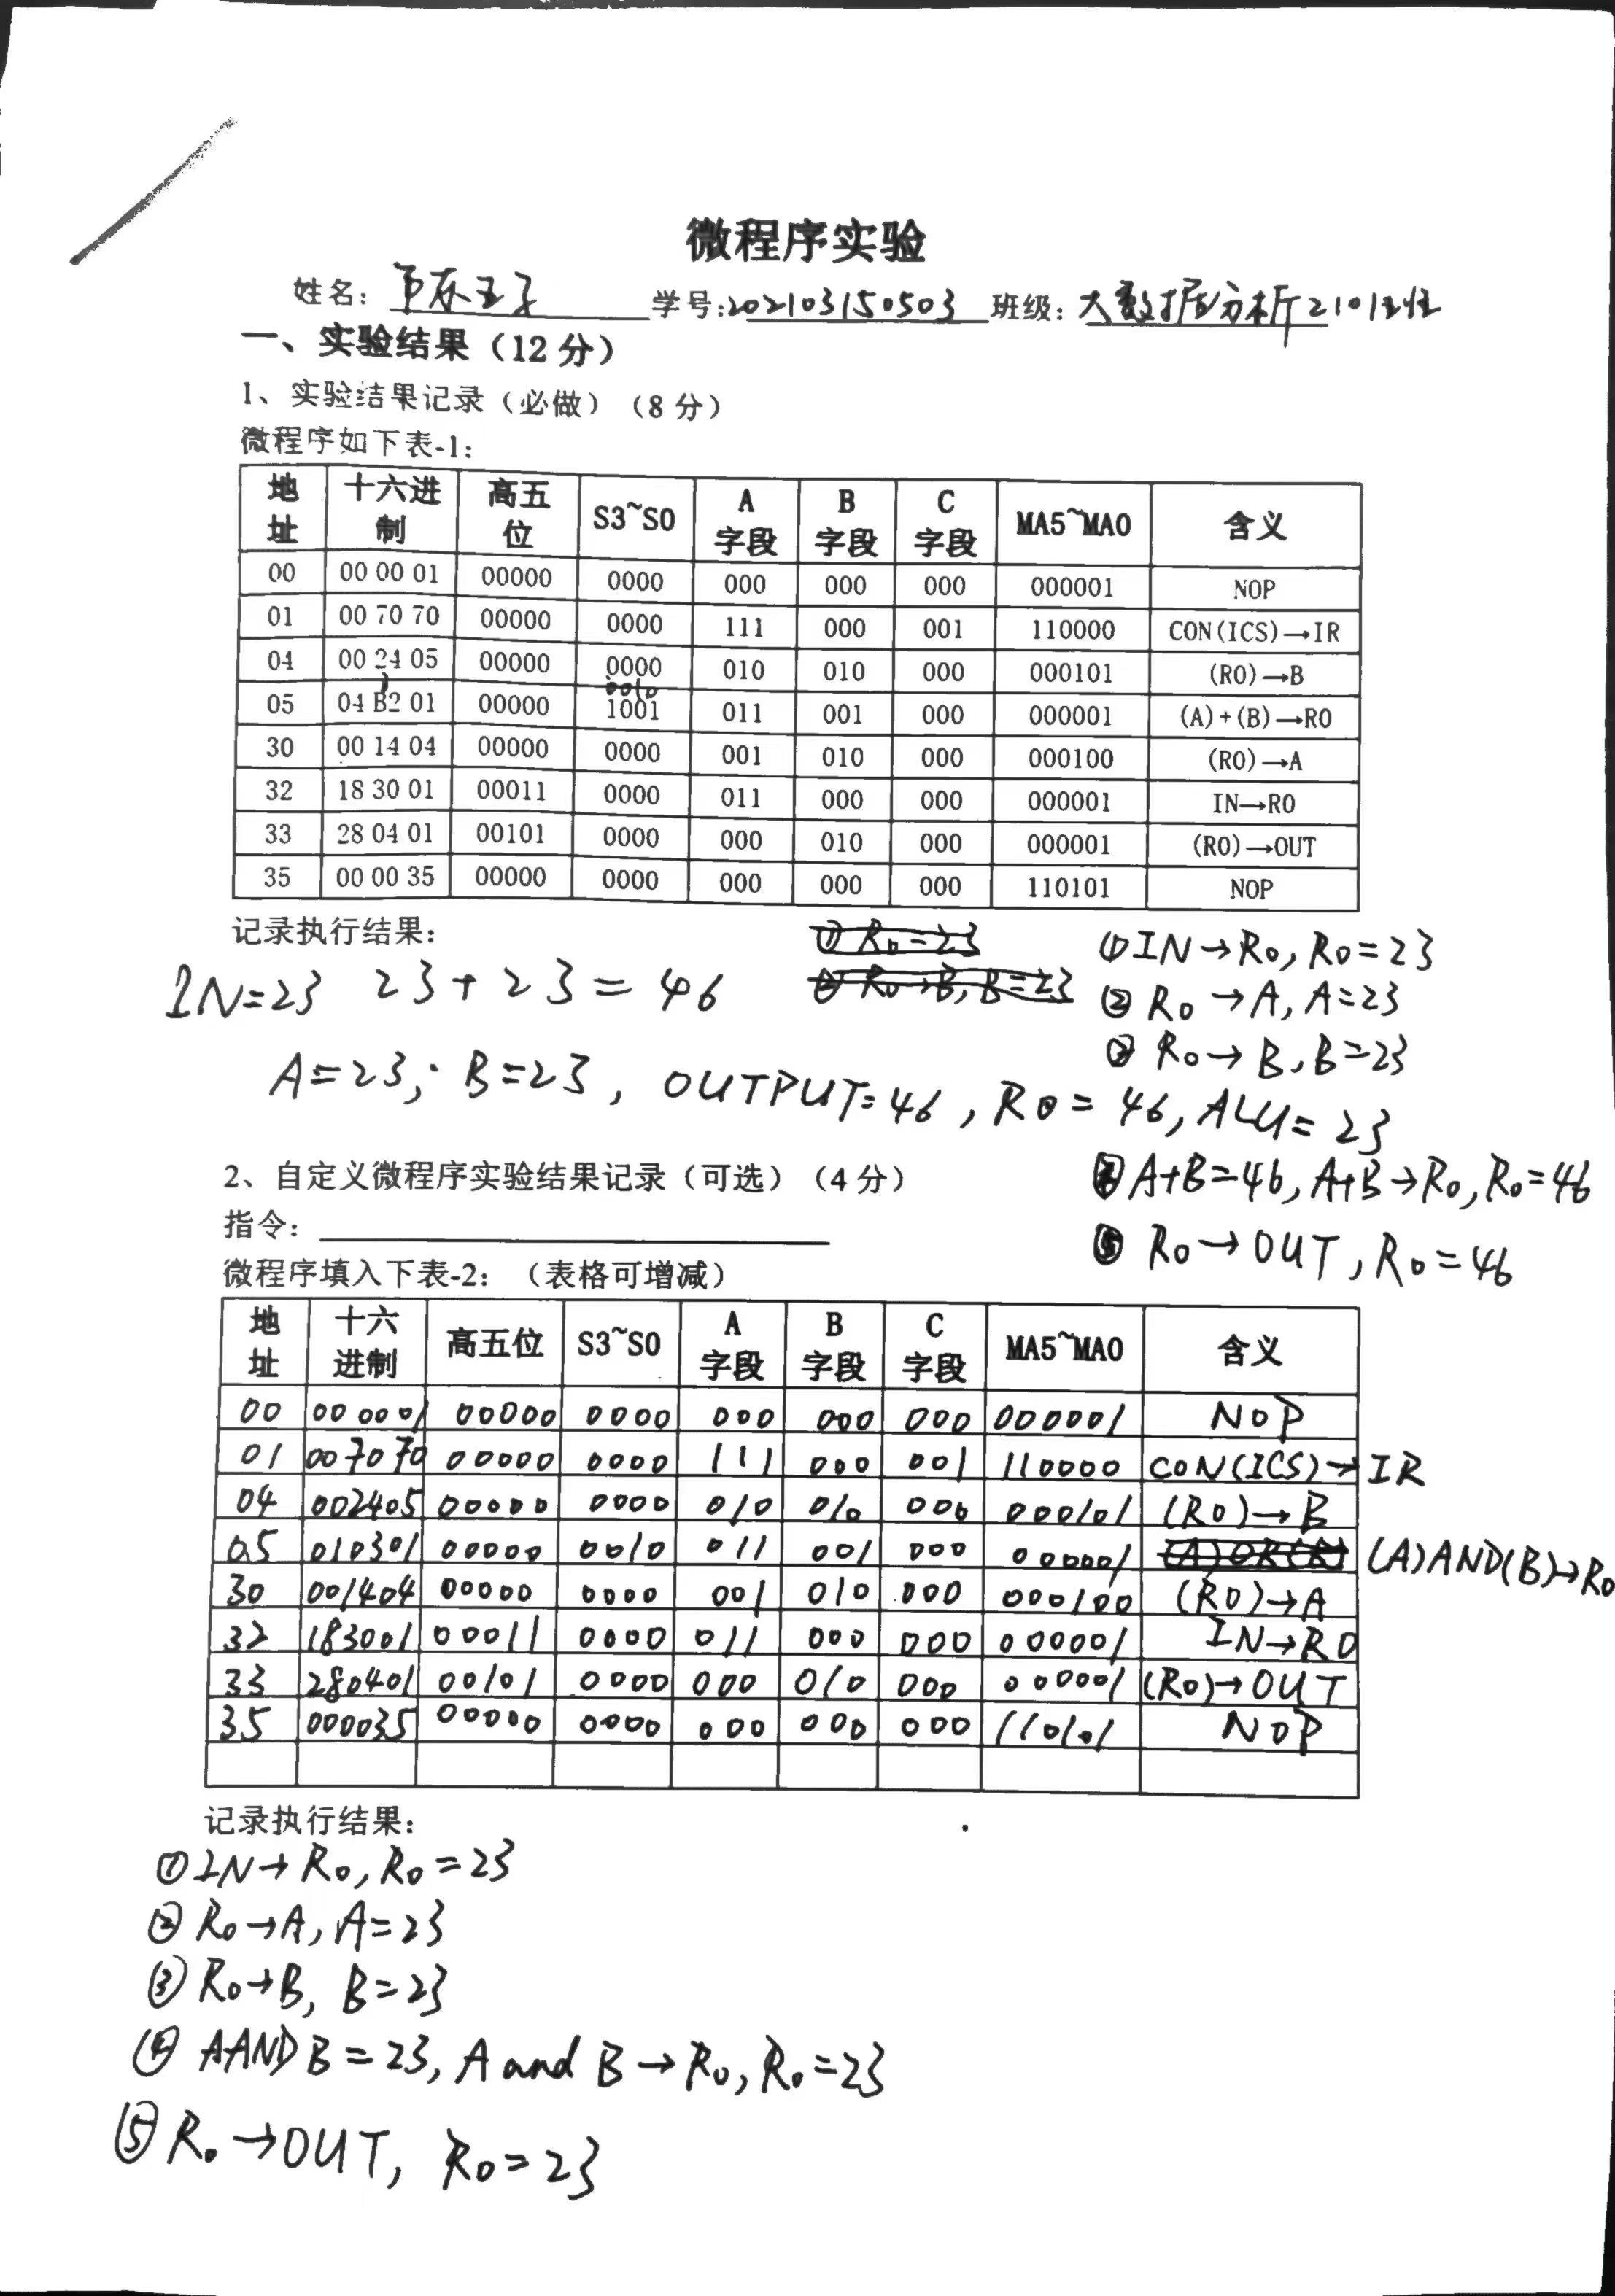 微程序实验
姓名: 学号:202103150503 班级: 大数据分析2101
一、实验结果（12 分）
1、实验结果记录（必做）（8 分）
微程序如下表-1:
地址 十六进制 高五位 S3~S0 A字段 B字段 C字段 MA5~MA0 含义
00 00 00 01 00000 0000 000 000 000 000001 NOP
01 00 70 70 00000 0000 111 000 001 110000 CON(ICS)→IR
04 00 24 05 00000 0000 010 010 000 000101 (R0)→B
0010
05 04 B2 01 00000 1001 011 001 000 000001 (A)+(B)→R0
30 00 14 04 00000 0000 001 010 000 000100 (R0)→A
32 18 30 01 00011 0000 011 000 000 000001 IN→R0
33 28 04 01 00101 0000 000 010 000 000001 (R0)→OUT
35 00 00 35 00000 0000 000 000 000 110101 NOP
记录执行结果:
① R0=23
② R0→B, B=23
①IN→R0, R0=23
② R0→A, A=23
③ R0→B, B=23
IN=23 23+23=46
A=23; B=23, OUTPUT=46, R0=46, ALU=23
④A+B=46, A+B→R0, R0=46
⑤ R0→OUT, R0=46
2、自定义微程序实验结果记录（可选）（4 分）
指令:
微程序填入下表-2: （表格可增减）
地址 十六进制 高五位 S3~S0 A字段 B字段 C字段 MA5~MA0 含义
00 000001 00000 0000 000 000 000 000001 NOP
01 007070 00000 0000 111 000 001 110000 CON(ICS)→IR
04 002405 00000 0000 010 010 000 000101 (R0)→B
05 010301 00000 0010 011 001 000 000001 (A)OR(B) (A)AND(B)→R0
30 001404 00000 0000 001 010 000 000100 (R0)→A
32 183001 00011 0000 011 000 000 000001 IN→R0
33 280401 00101 0000 000 010 000 000001 (R0)→OUT
35 000035 00000 0000 000 000 000 110101 NOP
记录执行结果:
①IN→R0, R0=23
②R0→A, A=23
③R0→B, B=23
④ AANDB=23, A and B→R0, R0=23
⑤R0→OUT, R0=23